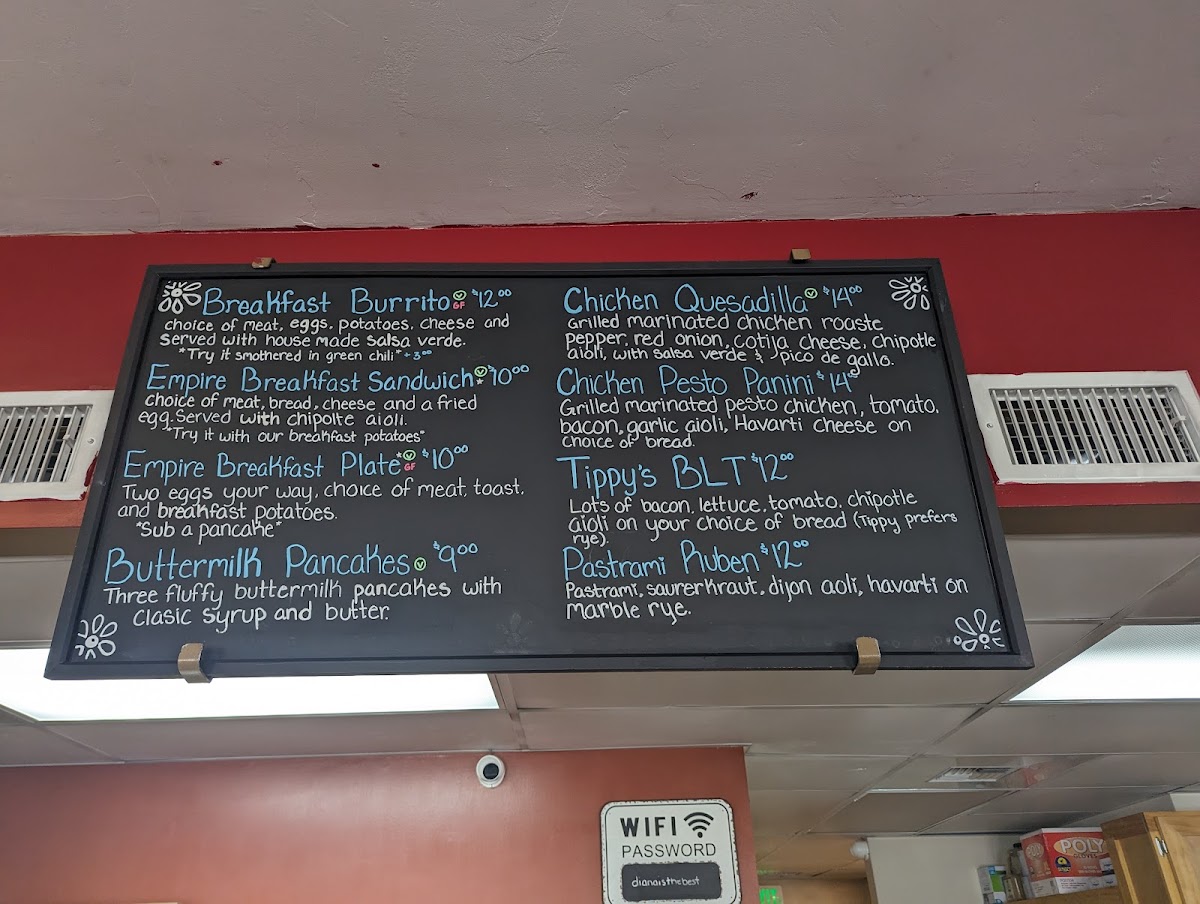 Breakfast Burrito V GF $12⁰⁰
choice of meat, eggs, potatoes, cheese and
served with house made salsa verde.
*Try it smothered in green chili* + 3⁰⁰
Empire Breakfast Sandwich V * $10⁰⁰
choice of meat, bread, cheese and a fried
egg. Served with chipolte aioli.
"Try it with our breakfast potatoes"
Empire Breakfast Plate * V GF $10⁰⁰
Two eggs your way, choice of meat, toast,
and breakfast potatoes.
"Sub a pancake"
Buttermilk Pancakes V $9⁰⁰
Three fluffy buttermilk pancakes with
clasic syrup and butter.
Chicken Quesadilla V $14⁰⁰
Grilled marinated chicken roaste
pepper, red onion, cotija cheese, chipotle
aioli, with salsa verde & pico de gallo.
Chicken Pesto Panini $14⁰⁰
Grilled marinated pesto chicken, tomato,
bacon, garlic aioli, Havarti cheese on
choice of bread.
Tippy's BLT $12⁰⁰
Lots of bacon, lettuce, tomato, chipotle
aioli on your choice of bread (Tippy prefers
rye).
Pastrami Ruben $12⁰⁰
Pastrami, saurerkraut, dijon aoli, havarti on
marble rye.
WIFI
PASSWORD
dianaisthebest
POLY
GLOVES